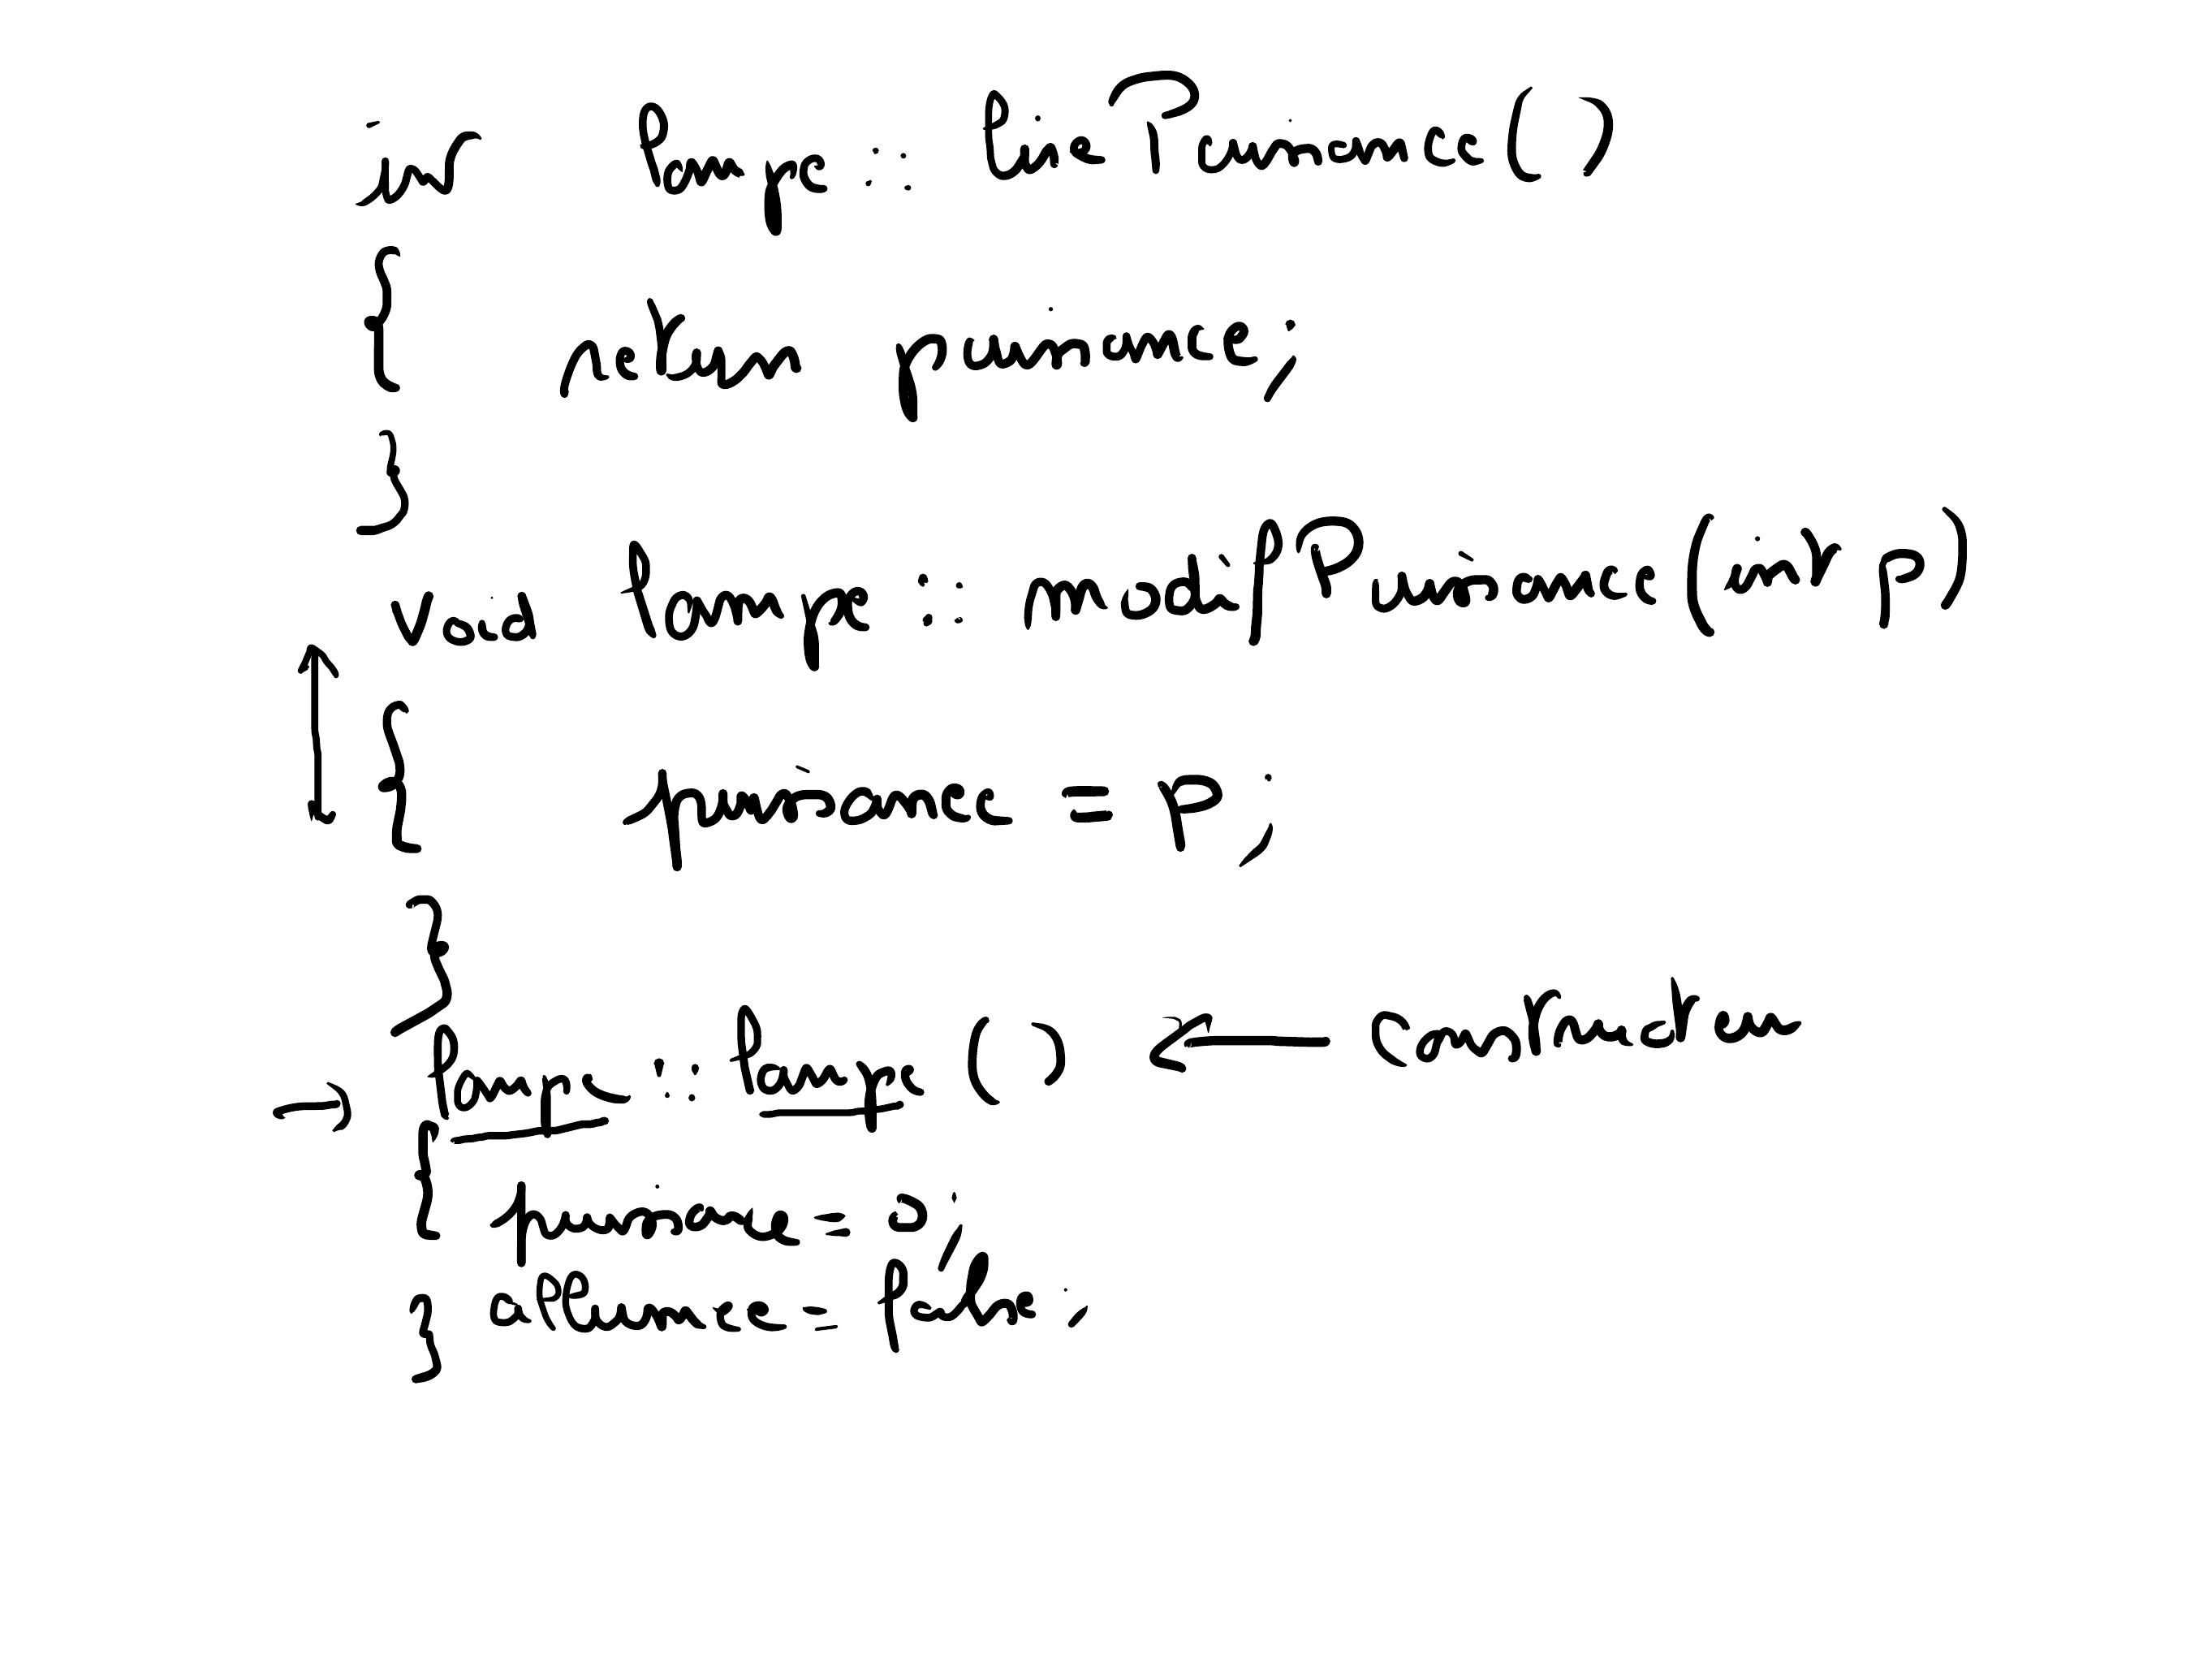 int Lampe :: lirePuissance()
{
return puissance;
}
void Lampe :: modifPuissance(int p)
{
puissance = p;
}
Lampe :: Lampe() ← constructeur
{
puissance = 0;
allumee = false;
}